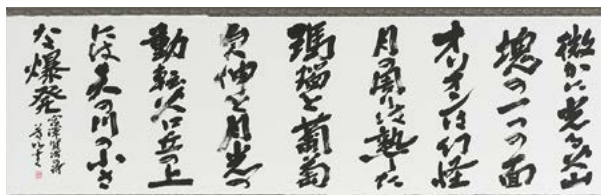 微かに光る火山
塊の一つの面
オリオンは幻怪
月の周りは熟した
瑪瑙と葡萄
欠伸と月光の
動転火口丘の上
には天の川の小さ
な爆発
宮澤賢治詩